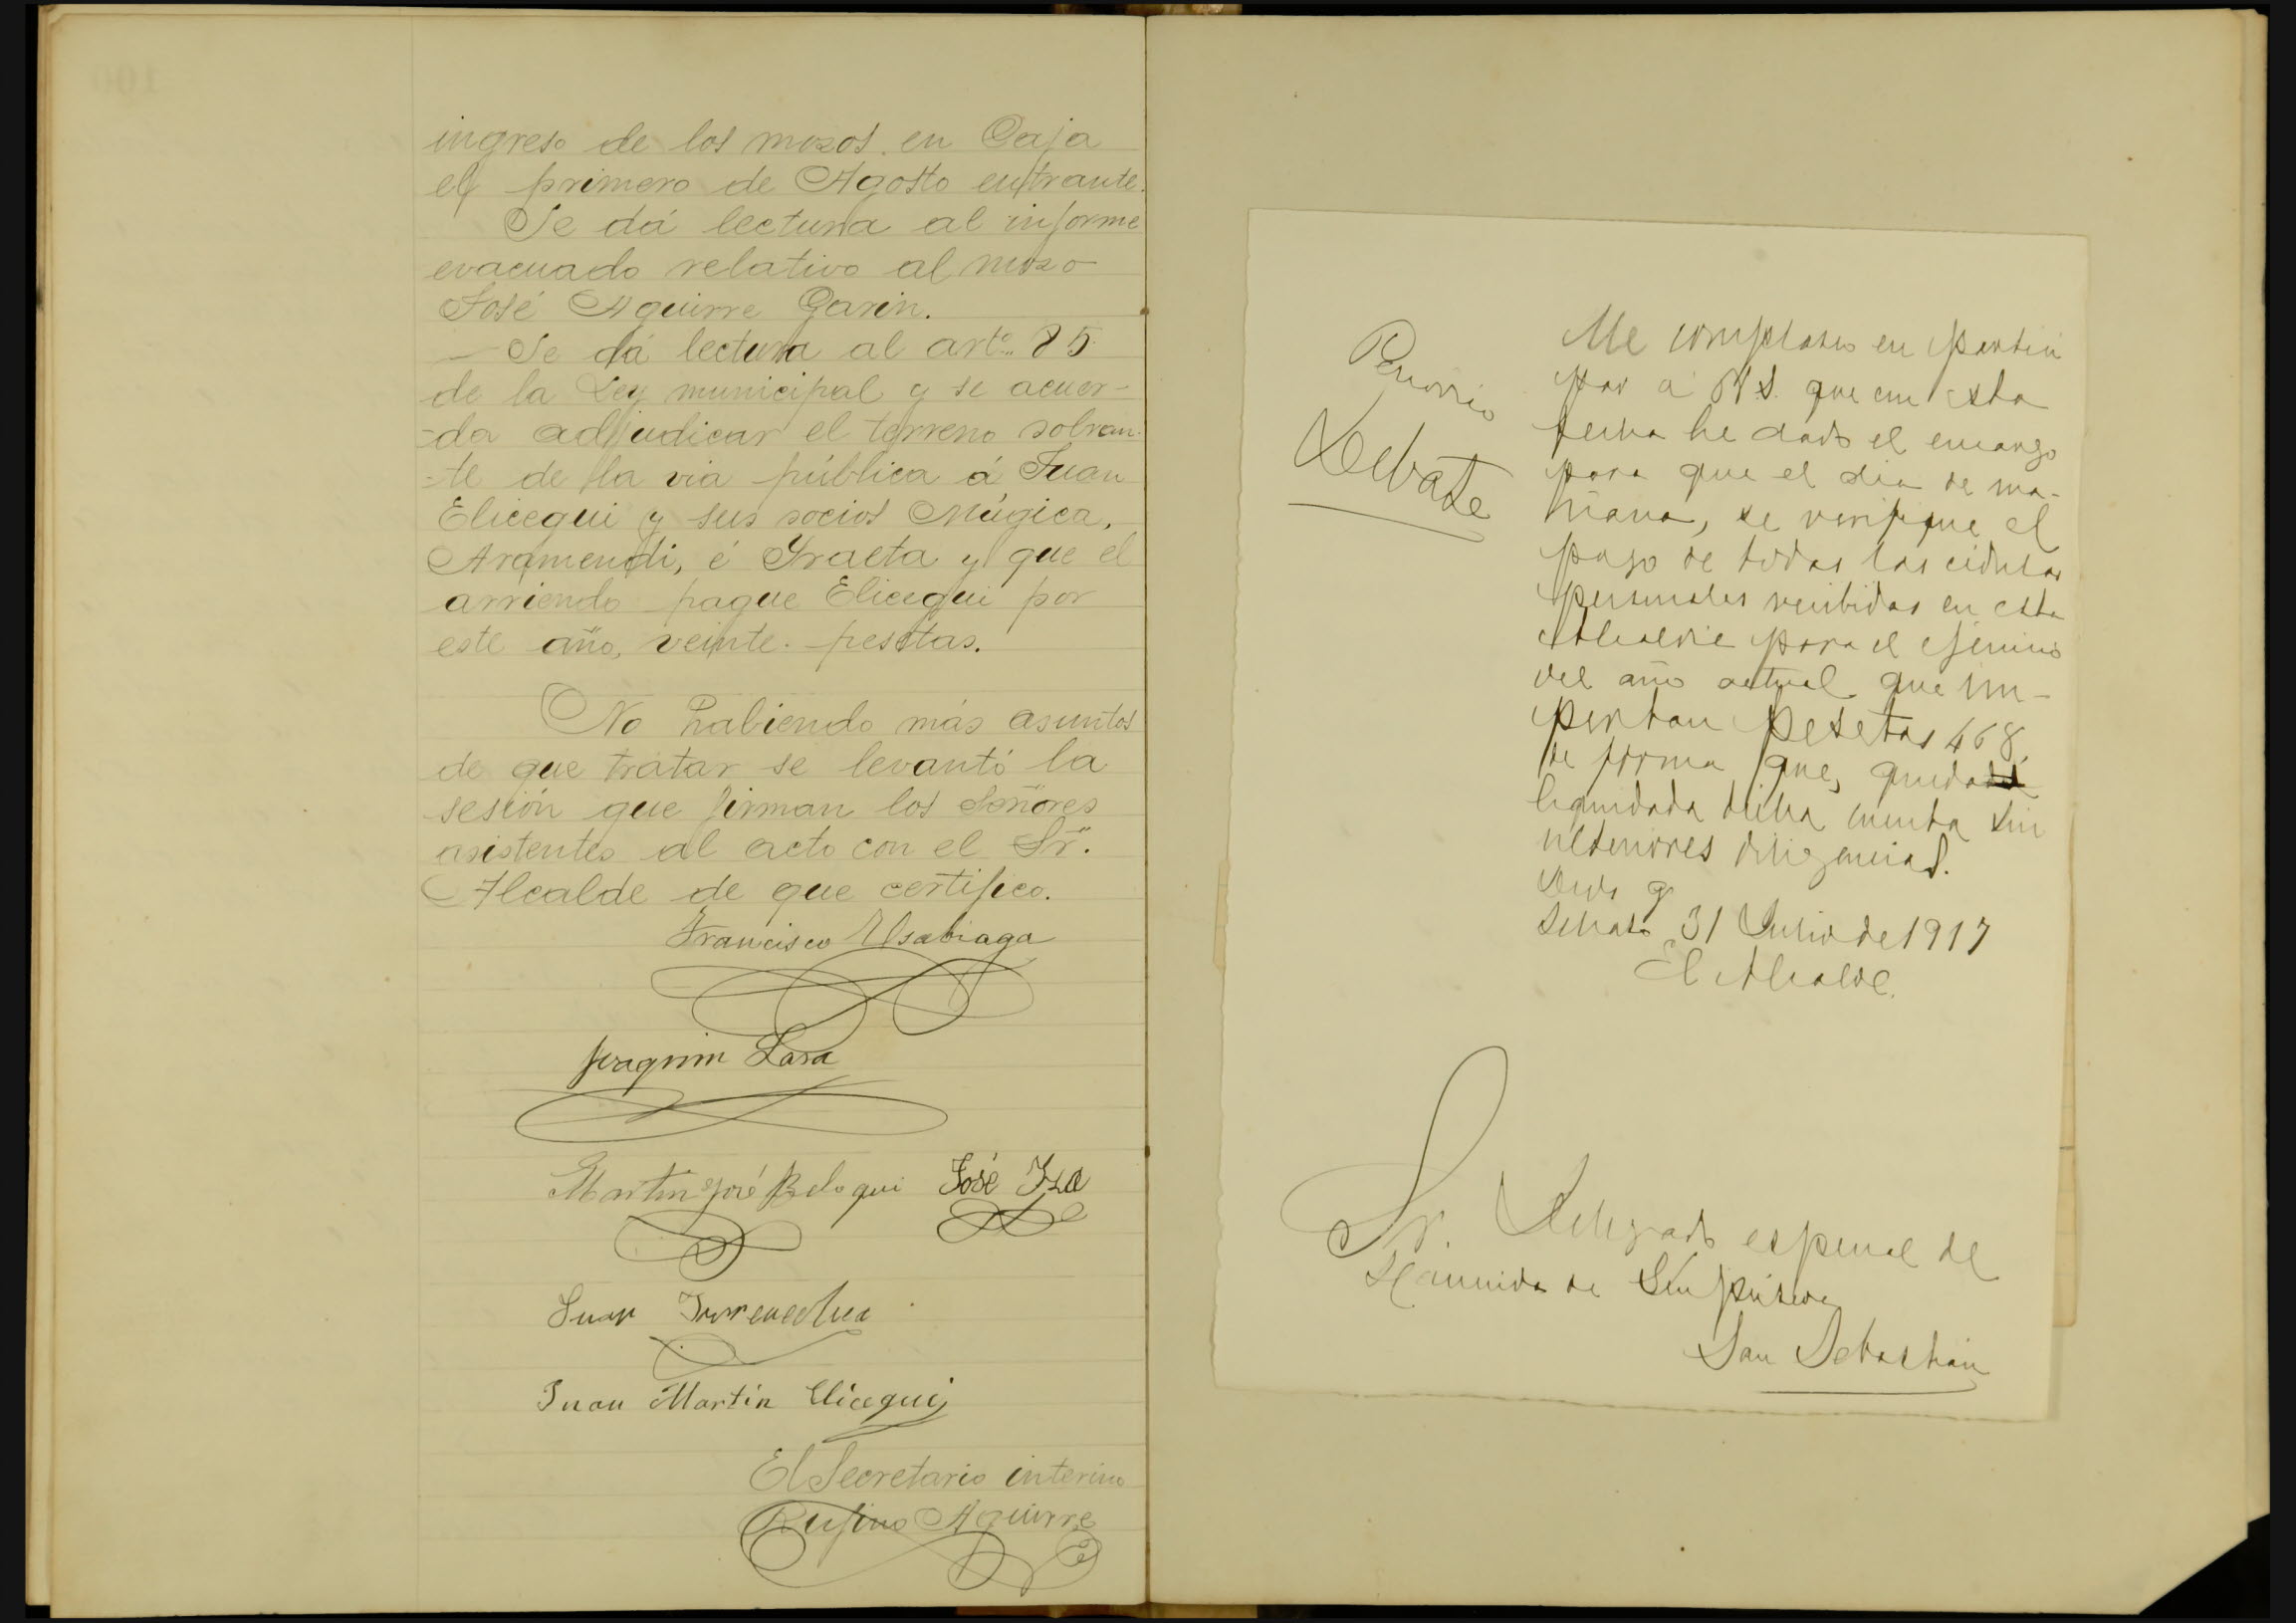 ingreso de los mozos en Caja
el primero de Agosto entrante.
Se dá lectura al informe
evacuado relativo al mozo
José Aguirre Garin.
- Se dá lectura al artº 85
de la Ley municipal y se acuer-
-da adjudicar el terreno sobran-
-te de la via pública á Juan
Elicegui y sus socios Múgica,
Aramendi, é Iraeta y que el
arriendo pague Elicegui por
este año, veinte pesetas.
No habiendo más asuntos
de que tratar se levantó la
sesión que firman los Señores
asistentes al acto con el Sr.
Alcalde de que certifico.
Francisco Usabiaga
Joaquin Lasa
Martin José Beloqui José Iza
Juan
Juan Martin Elicegui
El Secretario interino
Rufino Aguirre
Me complazco en partici
par a V.S. que en esta
fecha he dado el encargo
para que el dia de ma-
ñana, se verifique el
pago de todas las cédulas
personales recibidas en esta
Alcaldia para el ejercicio
del año actual que im-
portan pesetas 468,
de forma que, queda
liquidada dicha cuenta sin
ulteriores diligencias.
Dios g
31 Julio de 1917
El Alcalde.
Sr. Delegado especial de
Hacienda de Guipúzcoa
San Sebastián